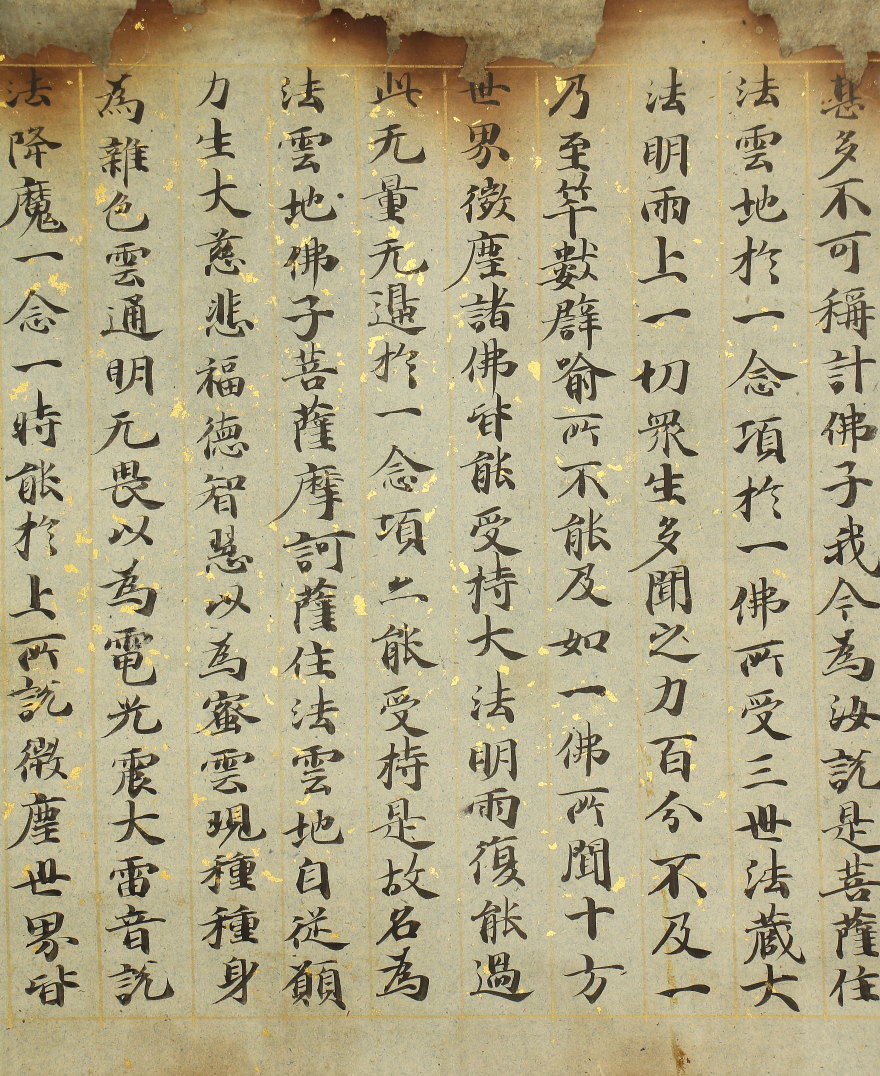 甚多不可稱計佛子我今為汝說是菩薩住
法雲地於一念項於一佛所受三世法藏大
法明雨上一切眾生多聞之力百分不及一
乃至筭數譬喻所不能及如一佛所聞十方
世界微塵諸佛皆能受持大法明雨復能過
此无量无邊於一念項亦能受持是故名為
法雲地佛子菩薩摩訶薩住法雲地自從願
力生大慈悲福德智慧以為蜜雲現種種身
為雜色雲通明无畏以為電光震大雷音說
法降魔一念一時能於上所說微塵世界皆